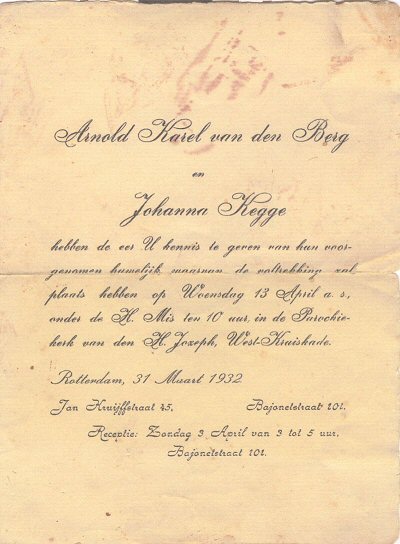 Arnold Karel van den Berg
en
Johanna Kegge
hebben de eer U kennis te geven van hun voor-
genomen huwelijk, waarvan de voltrekking zal
plaats hebben op Woensdag 13 April a. s.,
onder de H. Mis ten 10 uur, in de Parochie-
kerk van den H. Jozeph, West-Kruiskade.
Rotterdam, 31 Maart 1932.
Jan Kruijffstraat 45. Bajonetstraat 101.
Receptie: Zondag 3 April van 3 tot 5 uur,
Bajonetstraat 101.